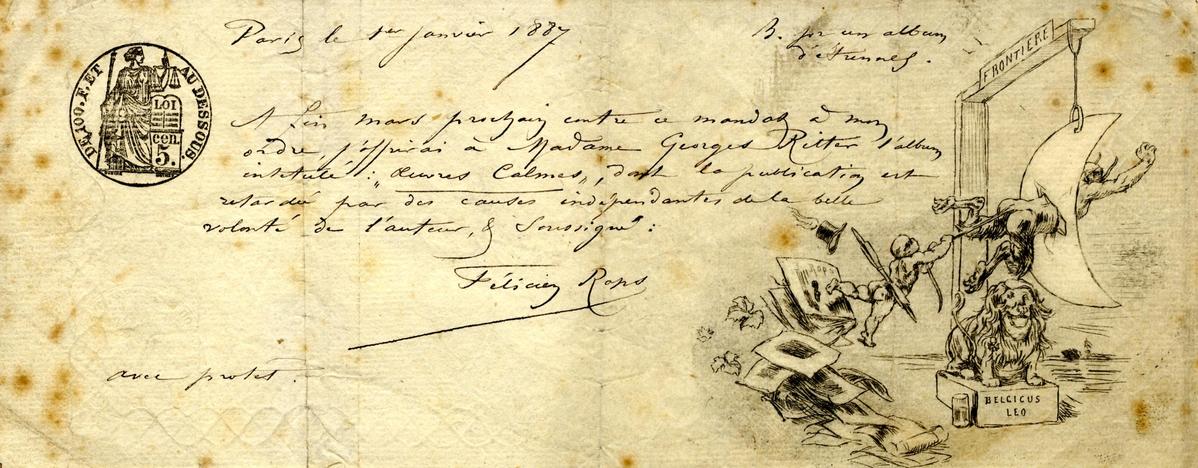 Paris le 1er janvier 1887
B. pr un album
d'étrennes.
DE 100. F. ET AU DESSOUS.
LOI
cen.
5.
A fin mars prochain contre ce mandat à mon
ordre, j'offrirai à Madame Georges Ritter l'album
intitulé : "Œuvres Calmes", dont la publication est
retardée par des causes indépendantes de la belle
volonté de l'auteur, & soussigné :
Félicien Rops
avec protet.
FRONTIÈRE
Rops
BELGICUS
LEO